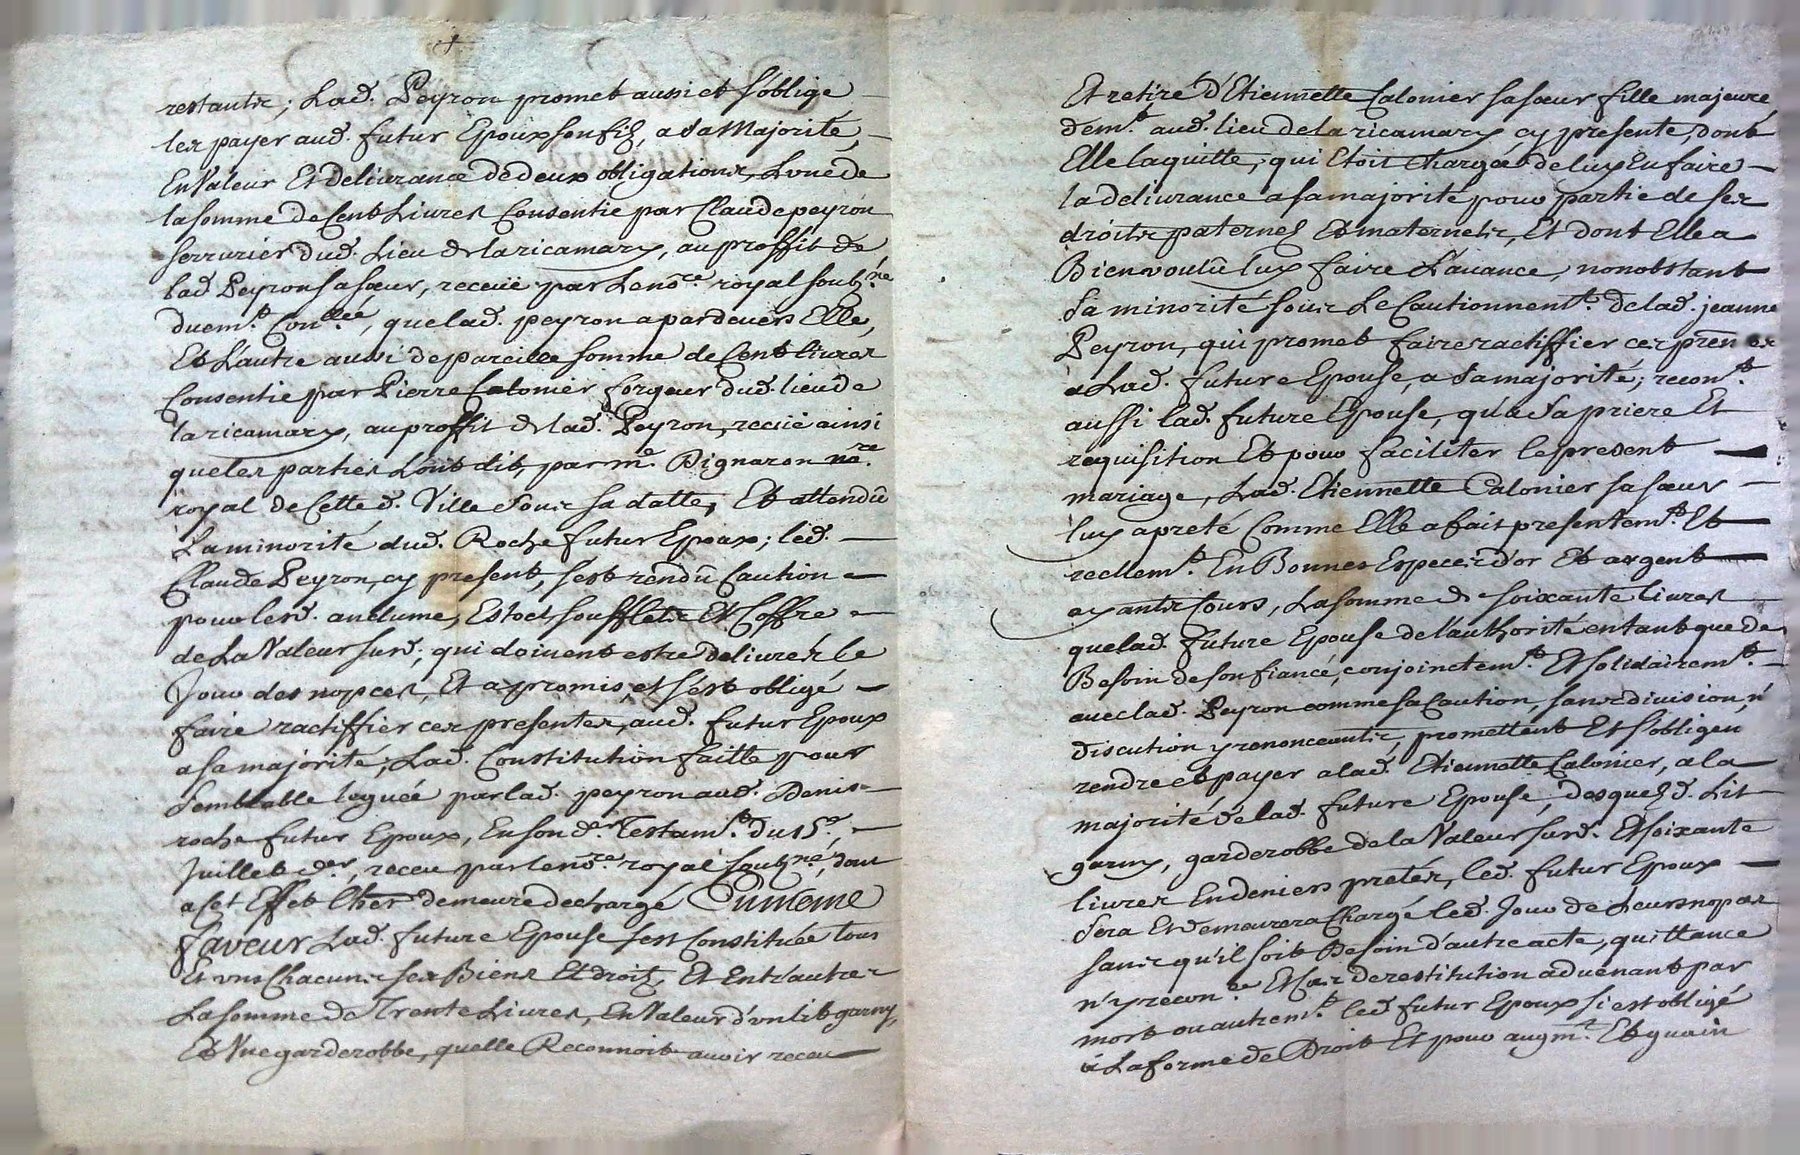 restants; Lad. Peyron promet aussi et s'oblige
les payer aud. futur Epoux son fils, a sa Majorité,
En Valeur Et delivrance de deux obligations, L'une de
la somme de Cent Livres Consentie par Claude peyron
serrurier dud. Lieu de la ricamary, au proffit de
lad Peyron sa sœur, receüe par Le no.re royal soub.né
duem.t Con.llée, que lad. peyron a par devers Elle,
Et L'autre aussi de pareille somme de Cent livres
Consentie par Pierre Calonier forgeur dud. lieu de
la ricamary, au proffit de lad. Peyron, recüe ainsi
que les parties L'ont dit, par m.e Pignaron no.re
royal de Cette d. Ville sous sa datte; Et attendû
La minorité dud. Roche futur Epoux; led.
Claude Peyron, cy present, s'est rendû Caution
pour lesd. anclume, Estoct, soufflets Et Coffre
de La Valeur surd; qui doivent estre delivrés le
Jour des nopces, Et a promis, et s'est obligé
faire ractiffier ces presentes, aud. futur Epoux
a sa majorité; Lad. Constitution faitte pour
semblable leguée par lad. peyron aud. Denis
roche futur Epoux, En son d.r Testam.t du 15.e
Juillet d.er, receu par le no.re royal soub.né, dont
a Cet Effet L'her demeure dechargé En même
faveur Lad. future Epouse s'est Constituée tous
Et uns Chacuns ses Biens Et droits, Et Entr'autres
La somme de Trente Livres, En Valeur d'un Lit garny,
Et Une garderobbe, quelle Reconnoit avoir receu
Et retiré d'Etiennette Calonier sa sœur fille majeure
dem.t aud. lieu de la ricamary, cy presente, dont
Elle la quitte, qui Etoit Chargée de luy En faire
la delivrance a sa majorité pour partie de ses
droits paternels Et maternels, Et dont Elle a
Bien voulû luy faire L'avance, nonobstant
sa minorité sous Le Cautionnem.t de lad. jeanne
Peyron, qui promet faire ractiffier ces
a Lad. future Epouse, a sa majorité; recon.t
aussi lad. future Epouse, qu'a sa priere Et
requisition Et pour faciliter le present
mariage, Lad. Etiennette Calonier sa sœur
luy a preté Comme Elle a fait presentem.t Et
reellem.t En Bonnes Especes d'or Et argent
ayants Cours, La somme de soixante livres
que lad. future Epouse de l'authorité en tant que de
Besoin de son fiancé, conjoinctem.t Et solidairem.t
avec lad. Peyron comme sa Caution, sans division, n'y
discution y renonceants, promettent Et s'obligen
rendre et payer a lad. Etiennette Calonier, a la
majorité de lad. future Epouse, desquels d. Lit
garny, garderobbe de la Valeur surd. Et soixante
livres En deniers pretés, led. futur Epoux
sera Et demeurera Chargé led. Jour de Leurs nopces
sans qu'il soit Besoin d'autre acte, quittance
n'y recon.ce Et Cas de restitution advenant par
mort ou autrem.t led. futur Epoux s'i est obligé
à La forme de Droit Et pour augm.t Et guain